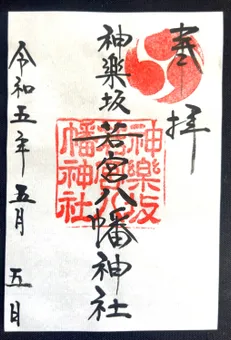 奉拝
神楽坂若宮八幡神社
神樂坂
若宮八
幡神社
令和五年五月五日